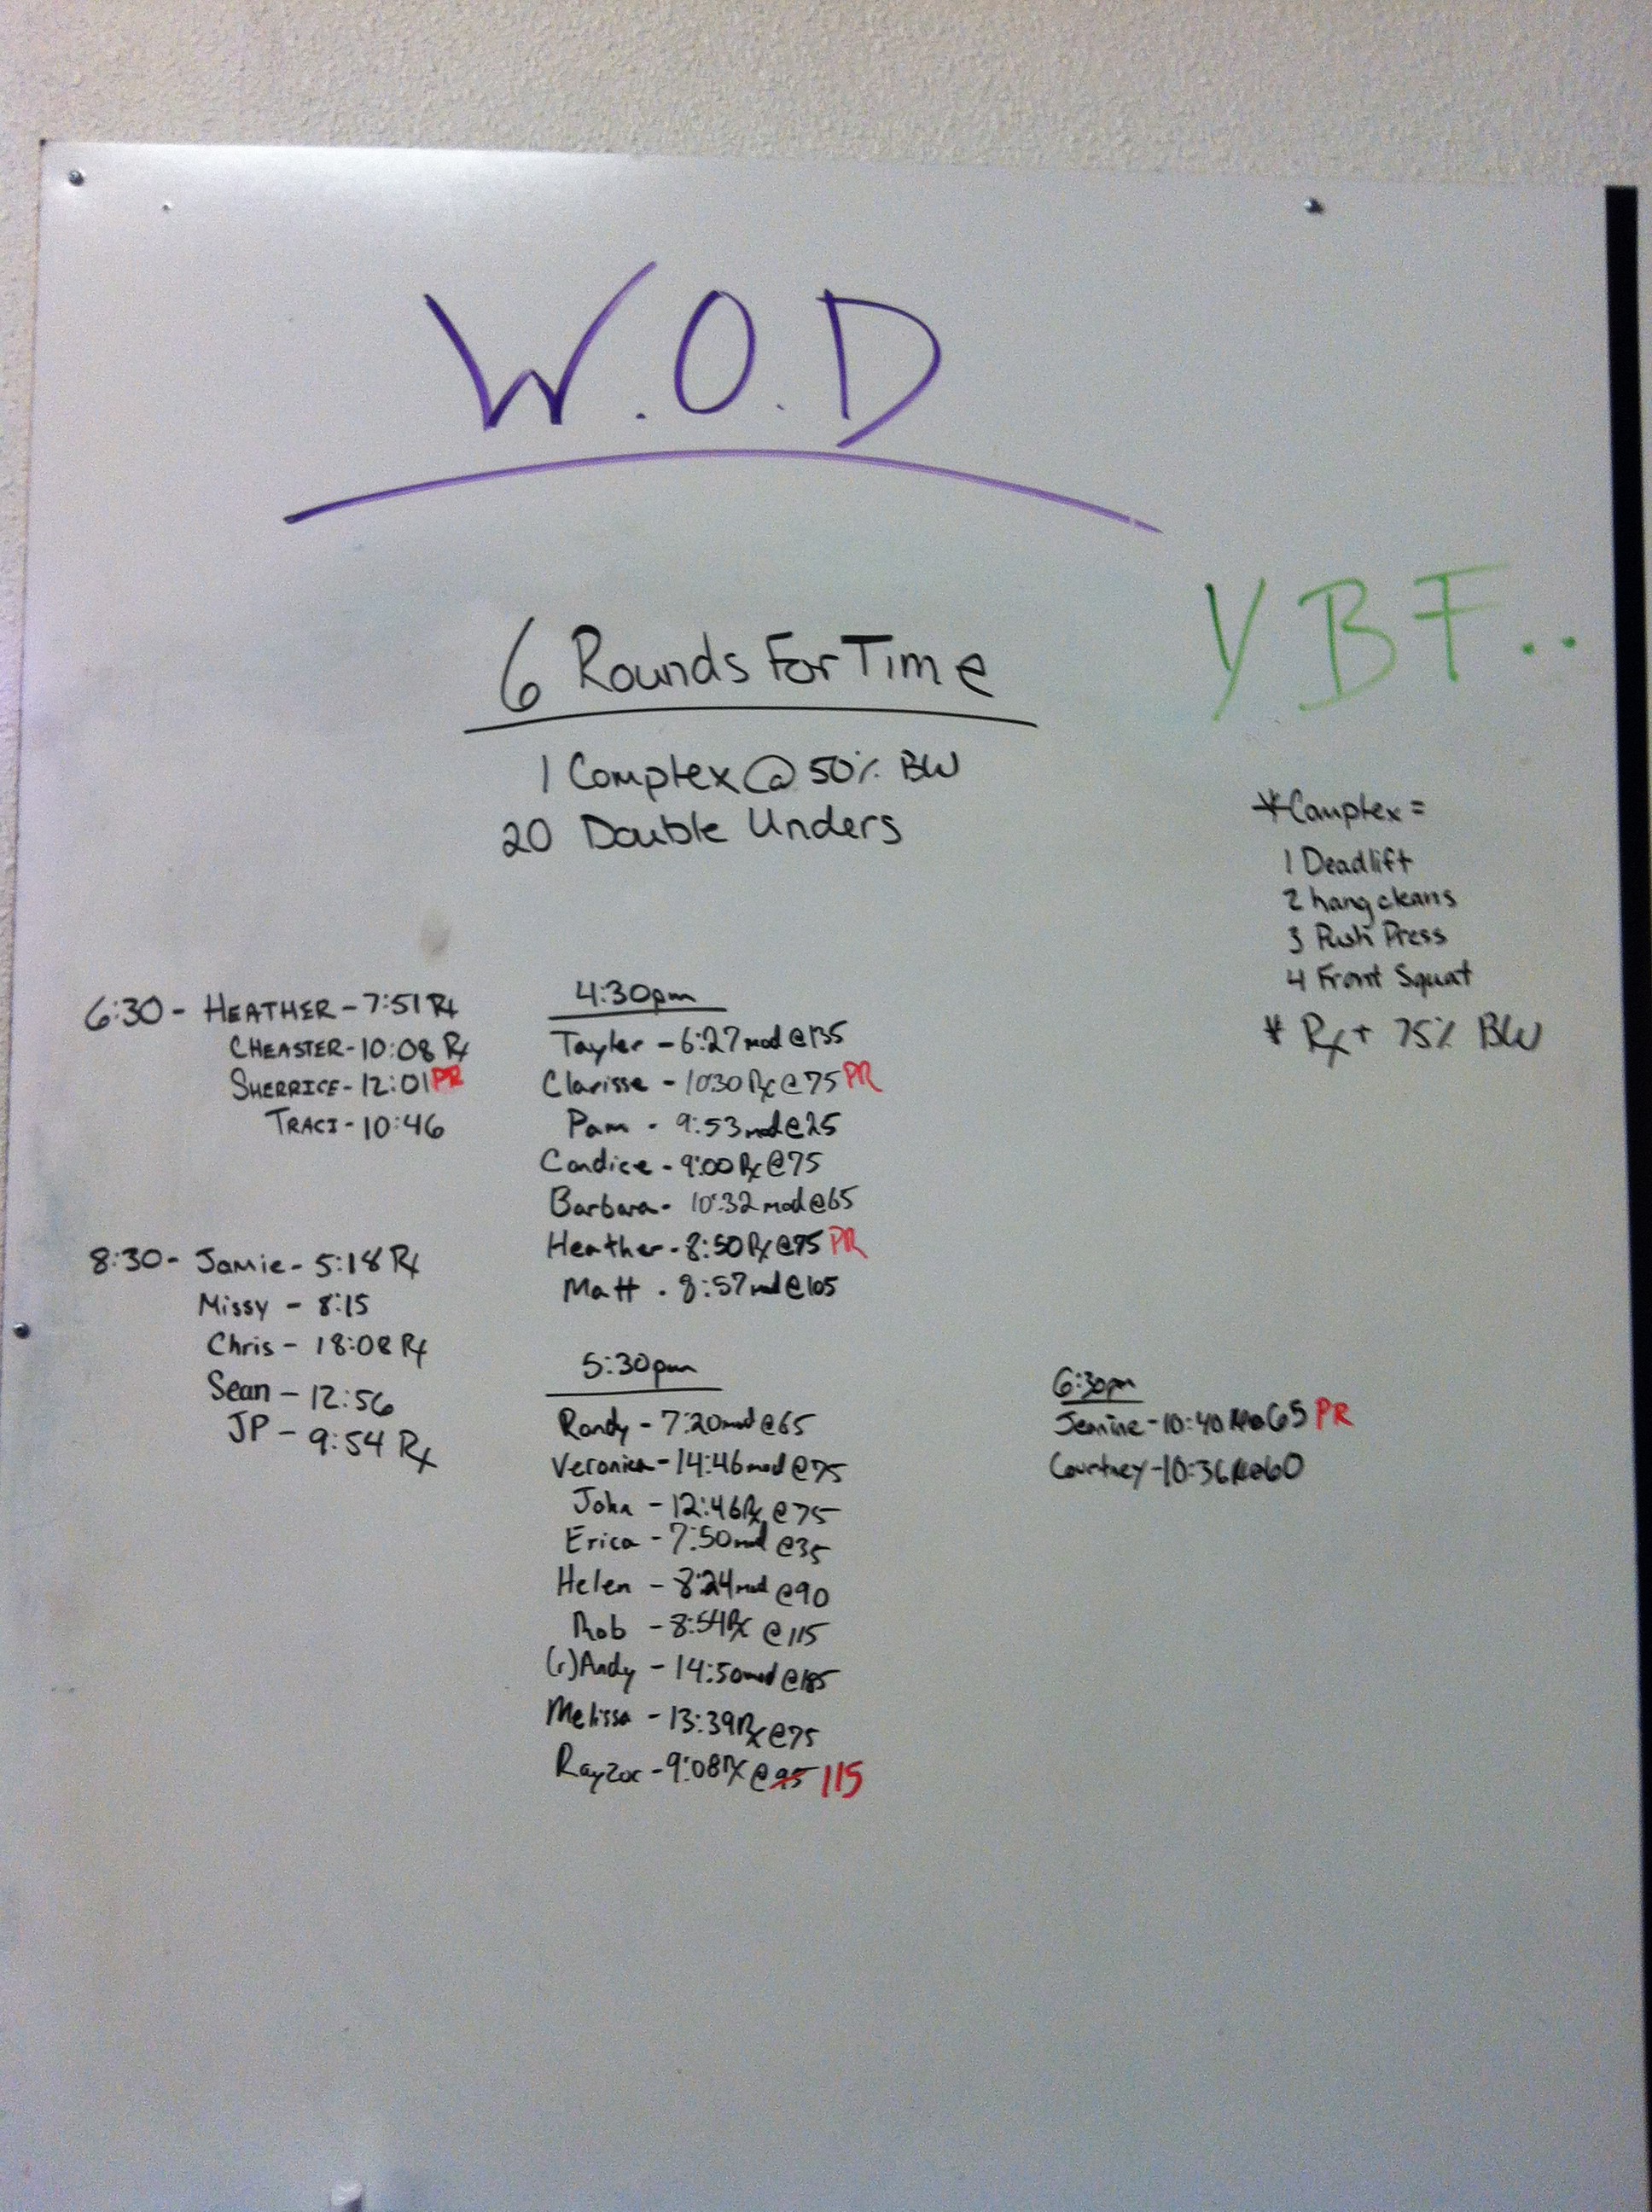 W.O.D
YBF..
6 Rounds For Time
1 Complex @ 50% BW
20 Double Unders
*Complex =
1 Deadlift
2 hang cleans
3 Push Press
4 Front Squat
* Rx+ 75% BW
6:30 - HEATHER - 7:51 Rx
CHEASTER - 10:08 Rx
SHERRICE - 12:01 PR
TRACI - 10:46
8:30 - Jamie - 5:18 Rx
Missy - 8:15
Chris - 18:08 Rx
Sean - 12:56
JP - 9:54 Rx
4:30pm
Tayler - 6:27 mod @ 135
Clarisse - 10:30 Rx @ 75 PR
Pam - 9:53 mod @ 25
Candice - 9:00 Rx @ 75
Barbara - 10:32 mod @ 65
Heather - 8:50 Rx @ 75 PR
Matt - 8:57 mod @ 105
5:30pm
Randy - 7:20 mod @ 65
Veronica - 14:46 mod @ 75
John - 12:46 Rx @ 75
Erica - 7:50 mod @ 35
Helen - 8:24 mod @ 90
Rob - 8:54 Rx @ 115
(r)Andy - 14:50 mod @ 185
Melissa - 13:39 Rx @ 75
Rayzor - 9:08 Rx @ 95 115
6:30pm
Jeanine - 10:40 Rx @ 65 PR
Courtney - 10:36 Rx @ 60